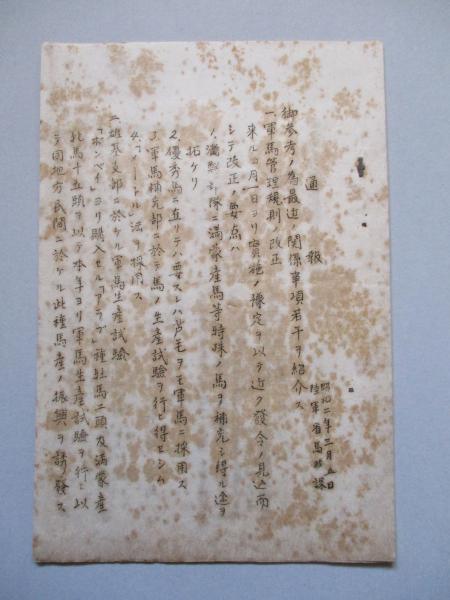 通報
昭和二年三月五日
陸軍省馬政課
御参考ノ為最近ノ関係事項若干ヲ紹介ス
一、軍馬管理規則ノ改正
来ル四月一日ヨリ実施ノ豫定ヲ以テ近ク發令ノ見込而
シテ改正ノ要点ハ
1、満鮮部隊ニ満蒙産馬等特殊ノ馬ヲ補充シ得ル途ヲ
拓ケリ
2、優秀馬ニ直リテハ要スレハ芦毛ヲモ軍馬ニ採用ス
3、軍馬補充部ニ於テ馬ノ生産試験ヲ行ヒ得セシム
4、「メートル」法ヲ採用ス
二、雄基支部ニ於ケル軍馬生産試験
「ボンベイ」ヨリ購入セル「アラブ」種牡馬二頭及満蒙産
牝馬十五頭ヲ以テ本年ヨリ軍馬生産試験ヲ行ヒ以
テ同地方民間ニ於ケル此種馬産ノ振興ヲ誘發ス